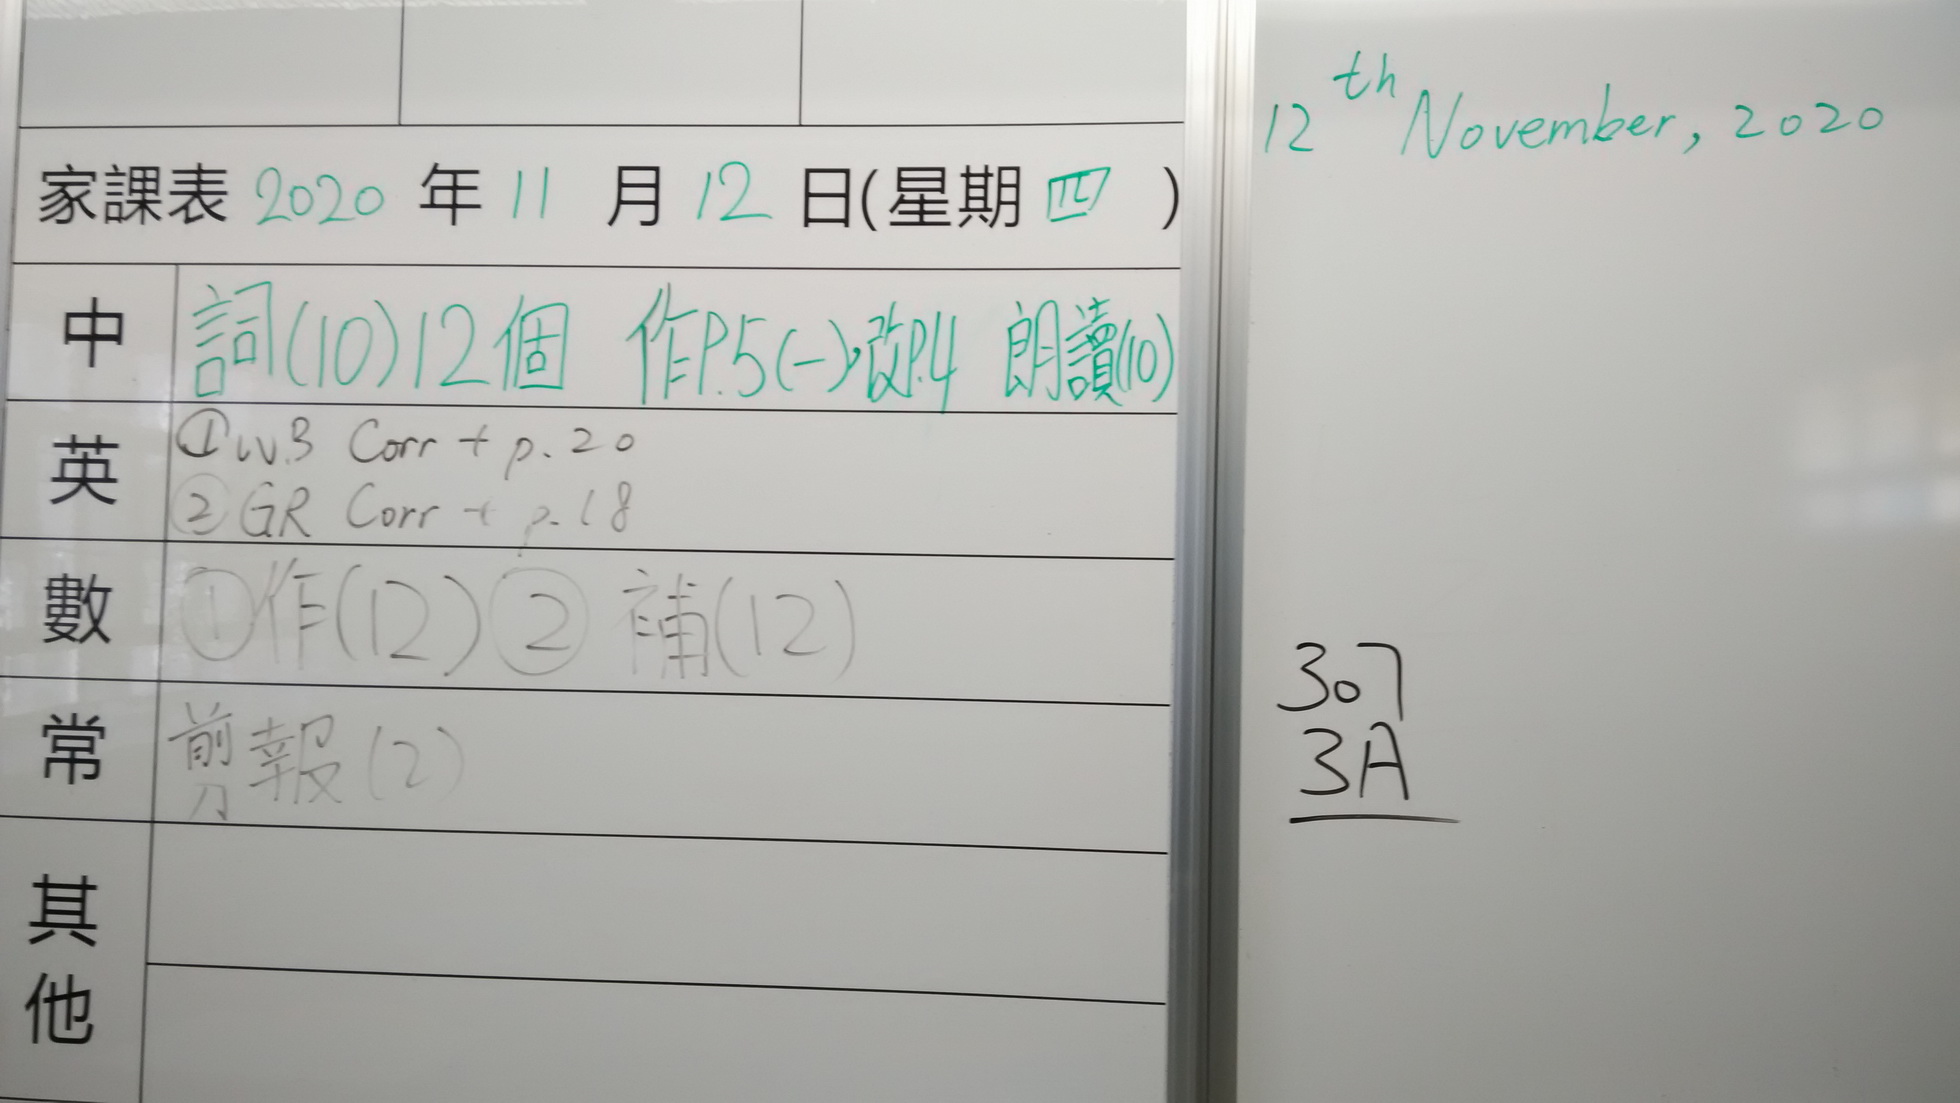 家課表 2020 年 11 月 12 日(星期 四 )
中 詞(10)12個 作P.5(一)、改P.4 朗讀(10)
英 ①W.B Corr + p.20
②GR Corr + p.18
數 ①作(12) ② 補(12)
常 剪報(2)
其他
12th November, 2020
307
3A